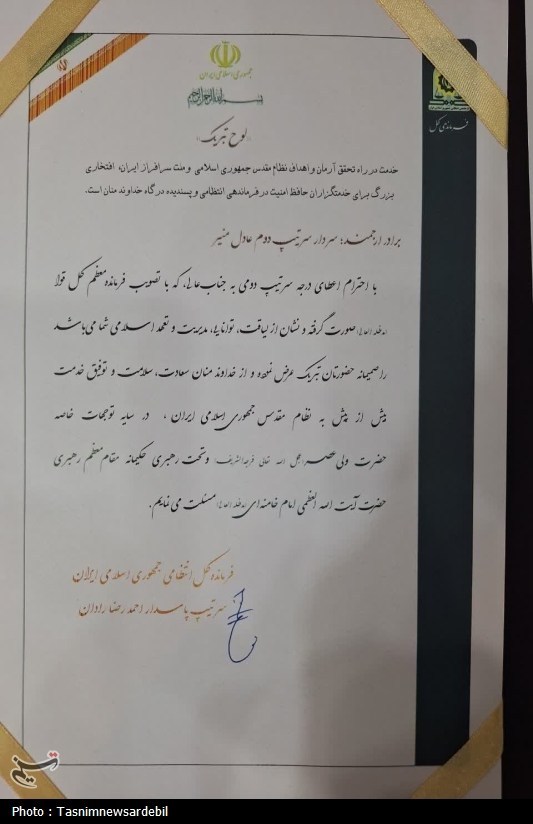 جمهوری اسلامی ایران
بسم الله الرحمن الرحیم
فرماندهی کل
«لوح تبریک»
خدمت در راه تحقق آرمان و اهداف نظام مقدس جمهوری اسلامی و ملت سرافراز ایران، افتخاری
بزرگ برای خدمتگزاران حافظ امنیت در فرماندهی انتظامی و پسندیده درگاه خداوند منان است.
برادر ارجمند؛ سردار سرتیپ دوم عادل منیر
با احترام اعطای درجه سرتیپ دومی به جناب‌عالی، که با تصویب فرمانده معظم کل قوا
(مدظله العالی) صورت گرفته و نشان از لیاقت، توانایی، مدیریت و تعهد اسلامی شما می‌باشد
را صمیمانه حضورتان تبریک عرض نموده و از خداوند منان سعادت، سلامت و توفیق خدمت
بیش از پیش به نظام مقدس جمهوری اسلامی ایران ، در سایه توجهات خاصه
حضرت ولی عصر (عجل الله تعالی فرجه الشریف) و تحت رهبری حکیمانه مقام معظم رهبری
حضرت آیت الله العظمی امام خامنه‌ای (مدظله العالی) مسئلت می نمایم.
فرمانده کل انتظامی جمهوری اسلامی ایران
سرتیپ پاسدار احمد رضا رادان
تسنیم
Photo : Tasnimnewsardebil